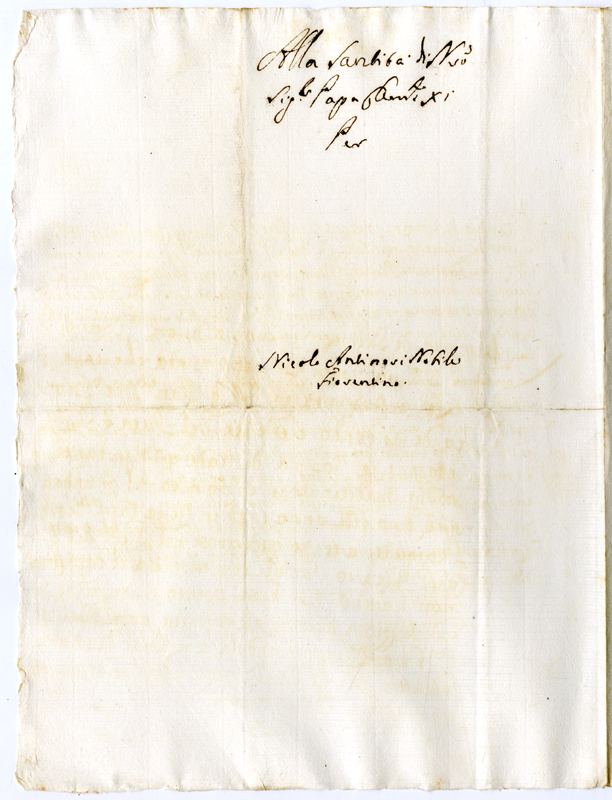 Alla Santità di N̄rō
Sig.re Papa Clem.te XI
Per
Nicolo Antinori Nobile
Fiorentino.